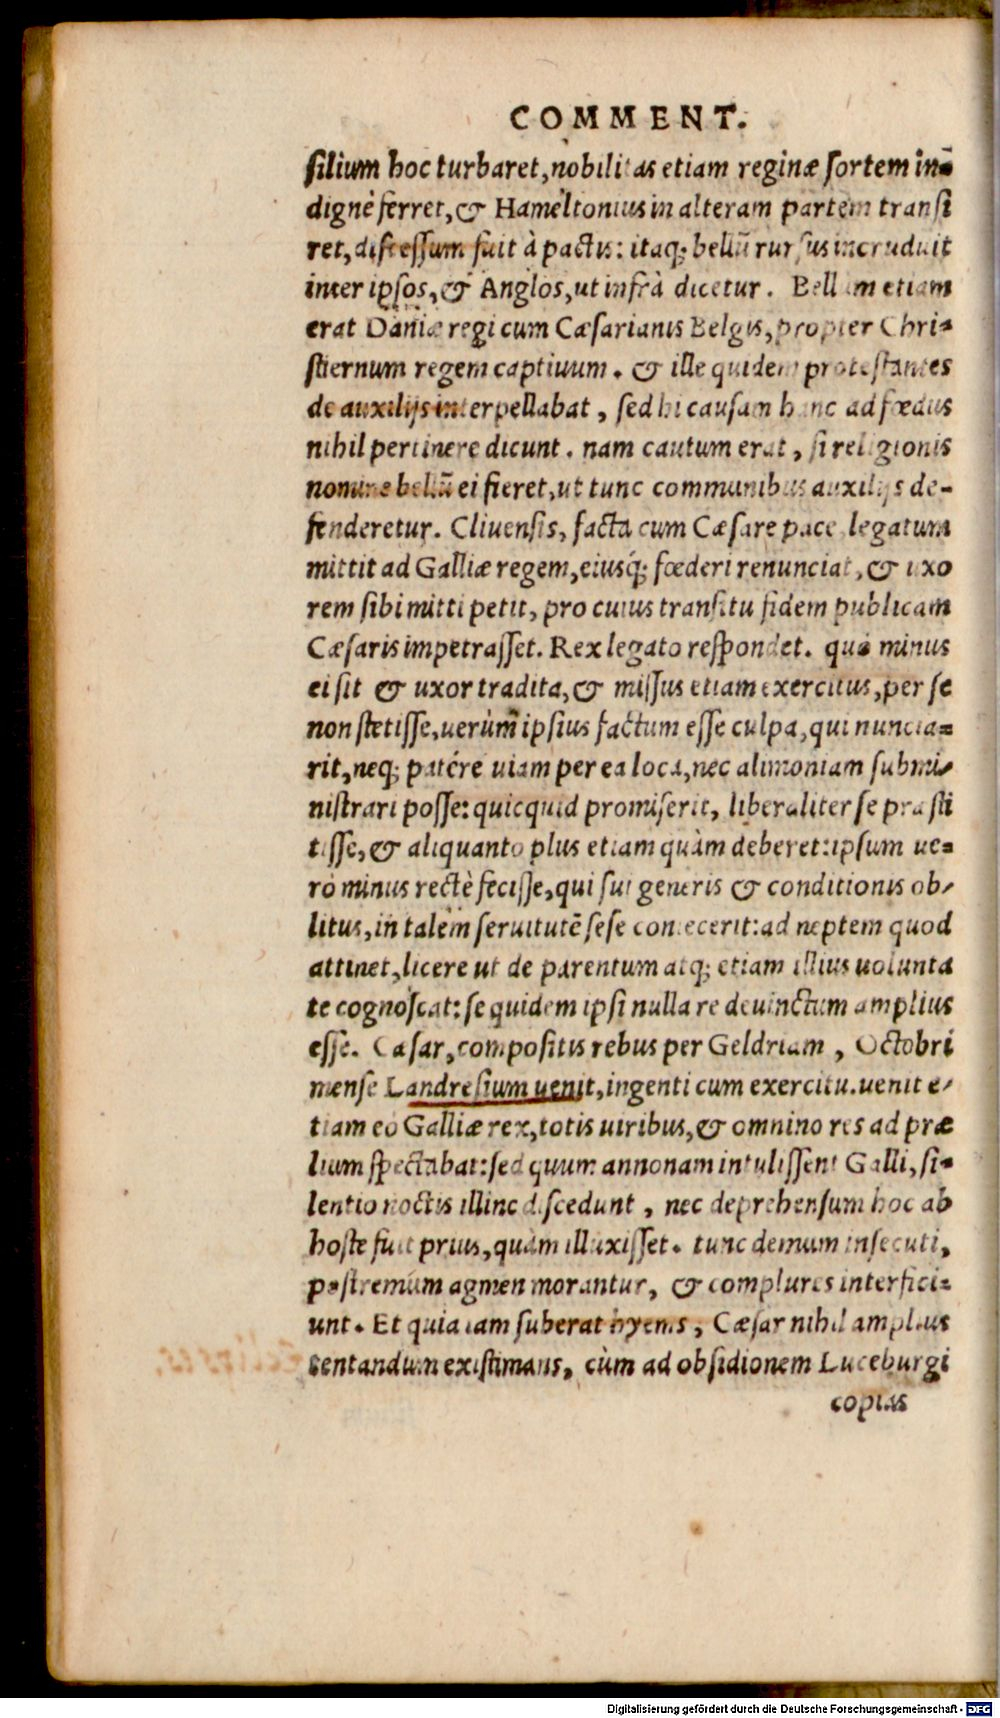 COMMENT.
silium hoc turbaret, nobilitas etiam reginæ sortem in-
dignè ferret, & Hameltonius in alteram partem transi
ret, discessum fuit à pactis: itaq; bellū rursus incruduit
inter ipsos, & Anglos, ut infrà dicetur. Bellum etiam
erat Daniæ regi cum Cæsarianis Belgis, propter Chri-
stiernum regem captiuum. & ille quidem protestantes
de auxilijs interpellabat, sed hi causam hanc ad fœdus
nihil pertinere dicunt. nam cautum erat, si religionis
nomine bellū ei fieret, ut tunc communibus auxilijs de-
fenderetur. Cliuensis, facta cum Cæsare pace, legatum
mittit ad Galliæ regem, eiusq́; fœderi renunciat, & uxo
rem sibi mitti petit, pro cuius transitu fidem publicam
Cæsaris impetrasset. Rex legato respondet. quò minus
ei sit & uxor tradita, & missus etiam exercitus, per se
non stetisse, uerùm ipsius factum esse culpa, qui nuncia-
rit, neq; patére uiam per ea loca, nec alimoniam submi-
nistrari posse: quicquid promiserit, liberaliter se præsti
tisse, & aliquanto plus etiam quàm deberet: ipsum ue-
rò minus rectè fecisse, qui sui generis & conditionis ob-
litus, in talem seruitutē sese coniecerit: ad neptem quod
attinet, licere ut de parentum atq; etiam illius uolunta
te cognoscat: se quidem ipsi nulla re deuinctum amplius
esse. Cæsar, compositis rebus per Geldriam, Octobri
mense Landresium uenit, ingenti cum exercitu. uenit e-
tiam eò Galliæ rex, totis uiribus, & omnino res ad præ
lium spectabat: sed quum annonam intulissent Galli, si-
lentio noctis illinc discedunt, nec deprehensum hoc ab
hoste fuit prius, quàm illuxisset. tunc demum insecuti,
postremum agmen morantur, & complures interfici-
unt. Et quia iam suberat hyems, Cæsar nihil amplius
tentandum existimans, cùm ad obsidionem Luceburgi
copias
Digitalisierung gefördert durch die Deutsche Forschungsgemeinschaft - DFG